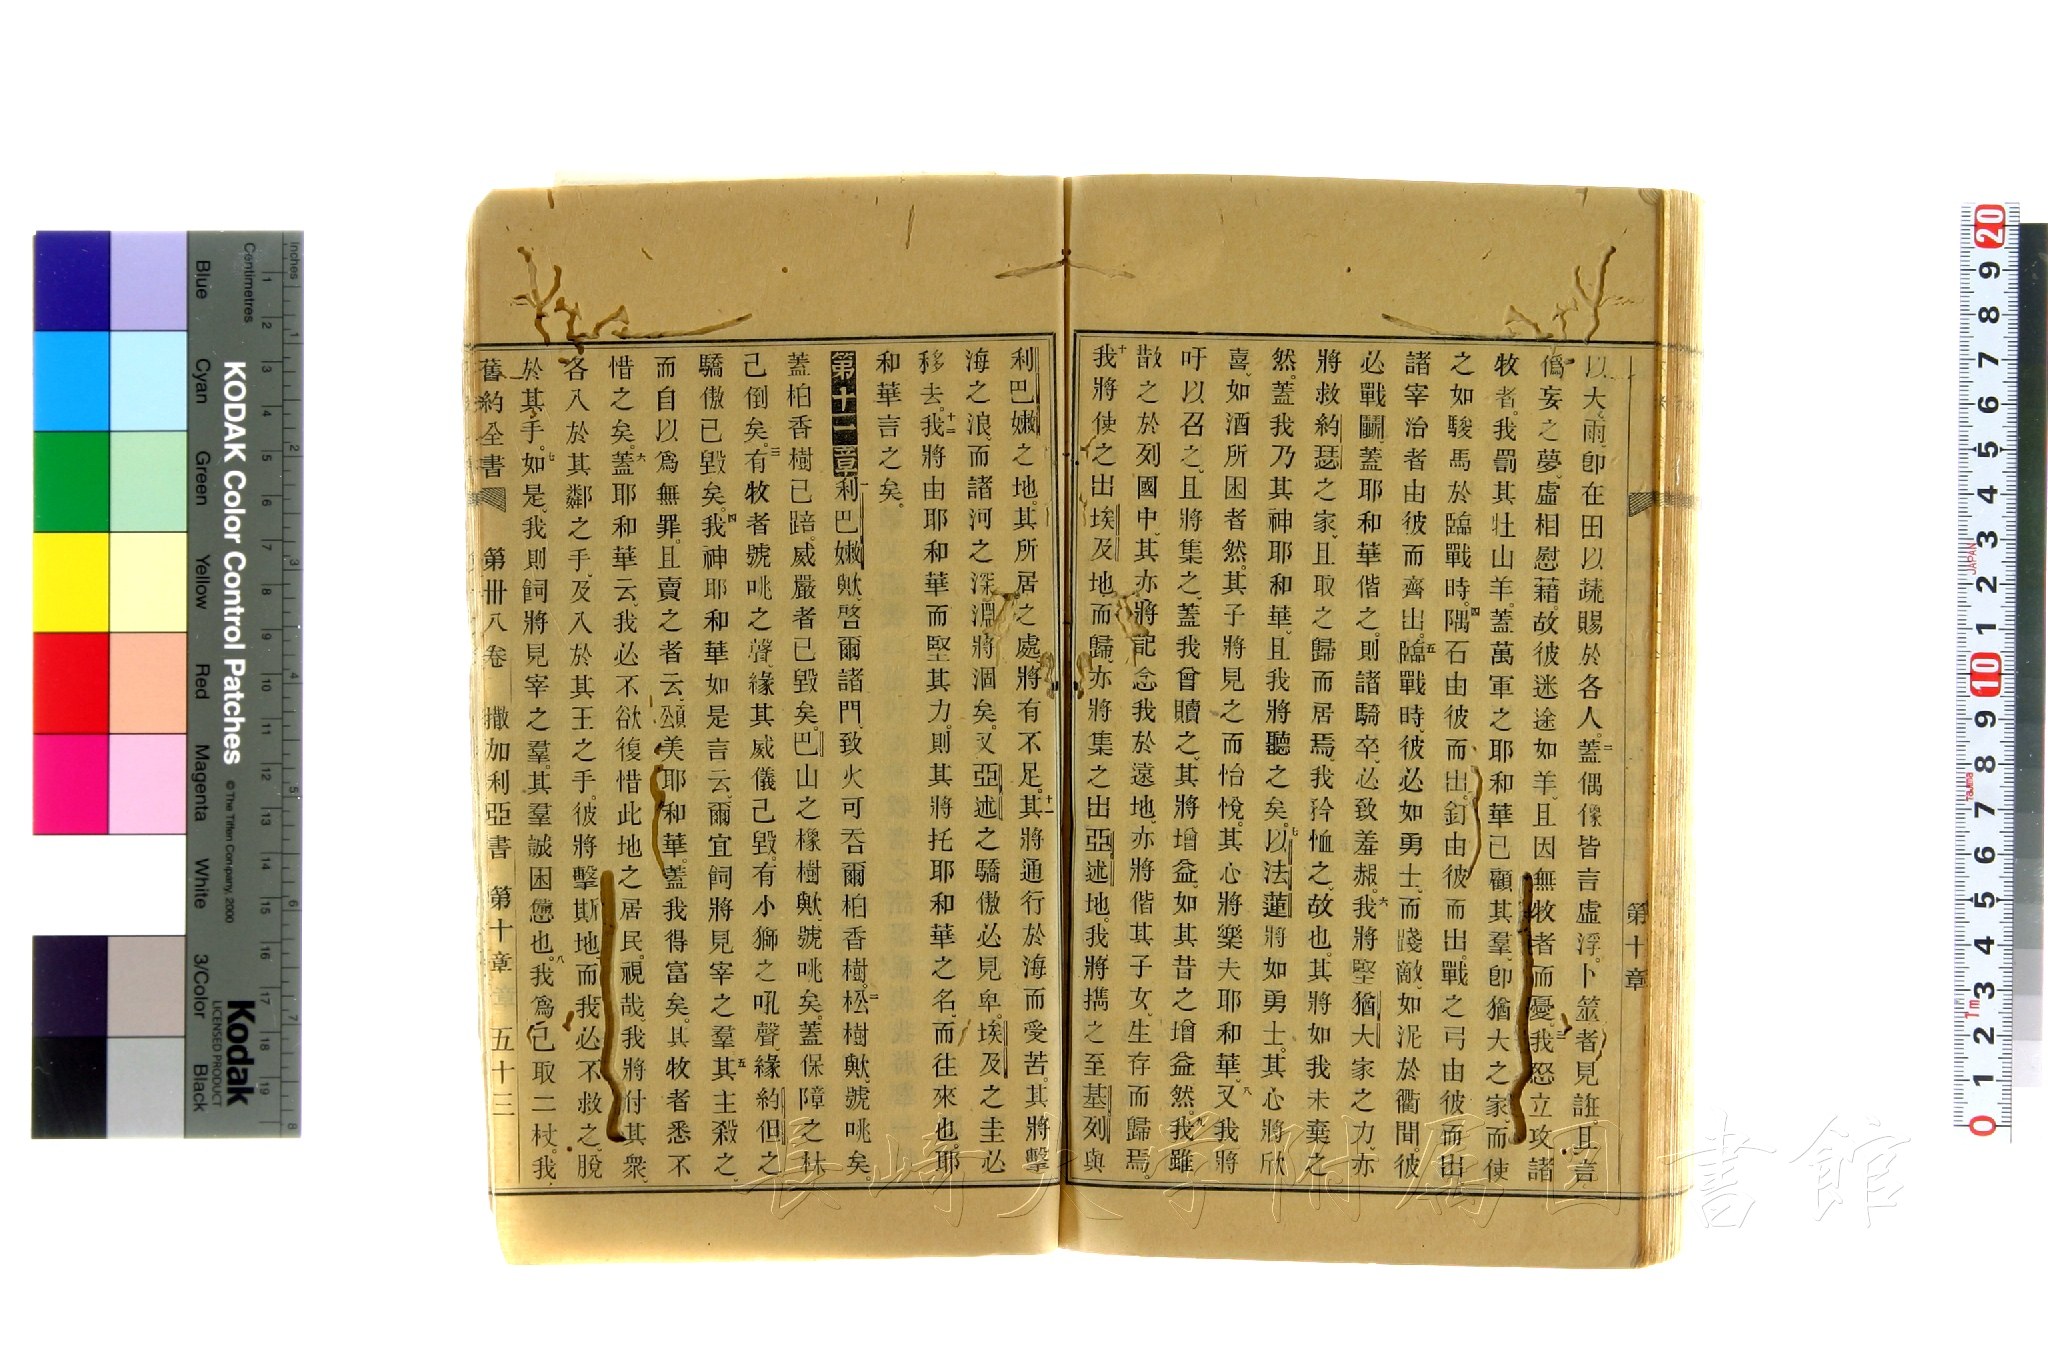 第十章
以大雨、卽在田以蔬賜於各人。二蓋偶像皆言虛浮。卜筮者見誑、且言
僞妄之夢、虛相慰藉。故彼迷途如羊、且因無牧者而憂。三我怒立攻諸
牧者。我罰其牡山羊。蓋萬軍之耶和華已顧其羣、卽猶大之家、而使
之如駿馬於臨戰時。四隅石由彼而出。釘由彼而出。戰之弓由彼而出
諸宰治者由彼而齊出。五臨戰時、彼必如勇士、而踐敵如泥於衢間。彼
必戰鬭、蓋耶和華偕之。則諸騎卒必致羞赧。六我將堅猶大家之力、亦
將救約瑟之家、且取之歸而居焉、我矜恤之故也。其將如我未棄之
然。蓋我乃其神耶和華、且我將聽之矣。七以法蓮將如勇士。其心將欣
喜、如酒所困者然。其子將見之而怡悅。其心將樂夫耶和華。八又我將
吁以召之、且將集之、蓋我曾贖之。其將增益、如其昔之增益然。九我雖
散之於列國中、其亦將記念我於遠地、亦將偕其子女、生存而歸焉。
十我將使之出埃及地、而歸、亦將集之出亞述地。我將攜之至基列與
利巴嫩之地。其所居之處、將有不足。十一其將通行於海而受苦。其將擊
海之浪、而諸河之深淵將涸矣。又亞述之驕傲必見卑。埃及之圭必
移去。十二我將由耶和華而堅其力、則其將托耶和華之名、而往來也。耶
和華言之矣。
第十一章 一利巴嫩歟、啓爾諸門、致火可吞爾柏香樹。二松樹歟、號咷矣。
蓋柏香樹已踣。威嚴者已毀矣。巴山之橡樹歟、號咷矣。蓋保障之林
己倒矣。三有牧者號咷之聲、緣其威儀已毀。有小獅之吼聲、緣約但之
驕傲已毀矣。四我神耶和華如是言云、爾宜飼將見宰之羣。五其主殺之、
而自以爲無罪。且賣之者云、頌美耶和華。蓋我得富矣。其牧者悉不
惜之矣。六蓋耶和華云、我必不欲復惜此地之居民。視哉、我將付其衆、
各入於其鄰之手、及入於其王之手。彼將擊斯地、而我必不救之、脫
於其手。七如是、我則飼將見宰之羣。其羣誠困憊也。八我爲己取二杖。我
舊約全書 第卅八卷 撒加利亞書 第十章 五十三
KODAK Color Control Patches
© The Tiffen Company, 2000
Kodak
LICENSED PRODUCT
Inches
Centimetres
Blue
Cyan
Green
Yellow
Red
Magenta
White
3/Color
Black
JAPAN
Tajima
1m
長崎大学附属図書館